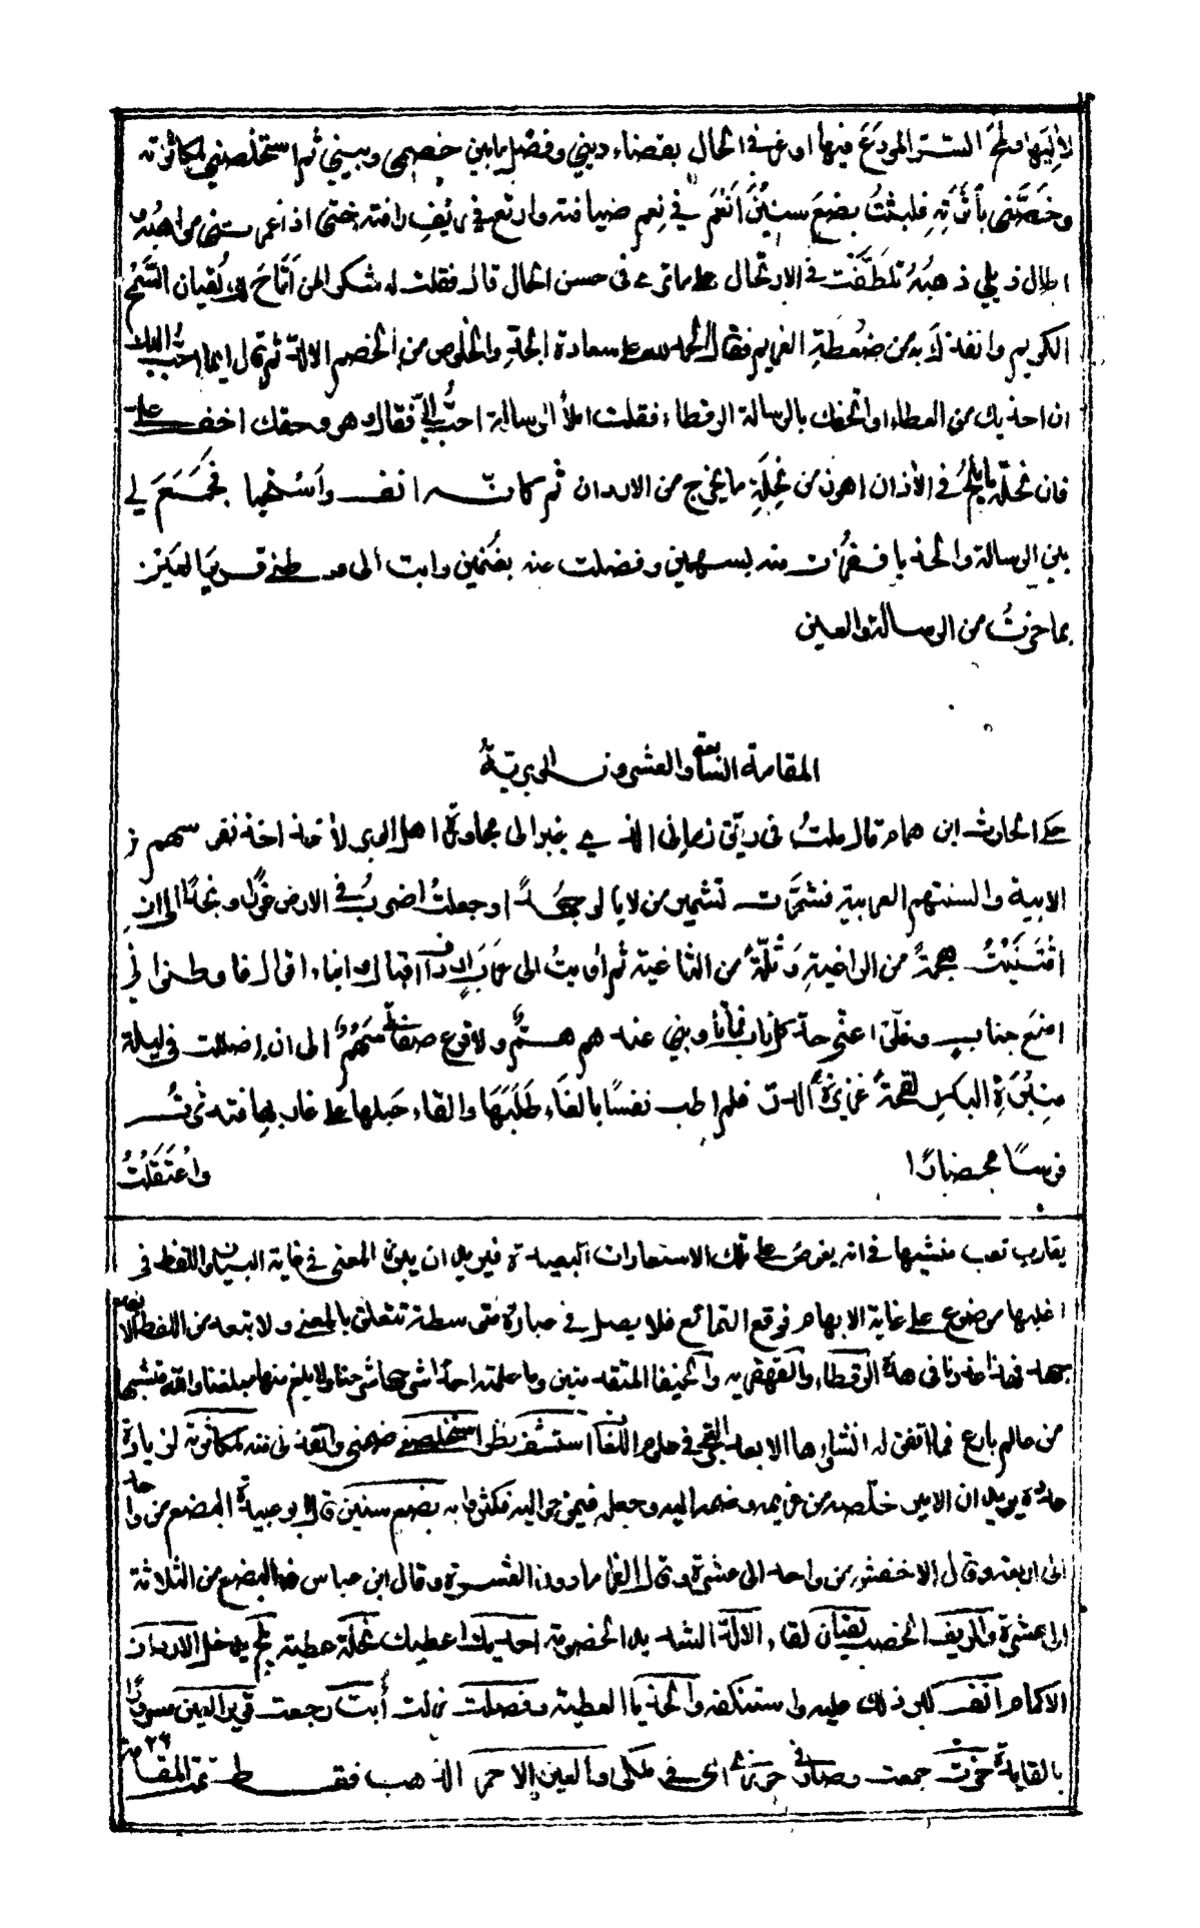 لآليها ولمح السر المودع فيها اوعز في الحال بقضاء ديني وفصل ما بين خصمي وبيني ثم استخلصني لمكاثرته
وخصّني بأثرته فلبثت بضع سنين انعم في نعم ضيافته وارتع في ريف رافته حتى اذا غمرتني مواهبه
اطال ذيلي ذهبه تلطفت في الارتحال على ما ترى في حسن الحال قال فقلت له شكرا لمن اتاح لك لقيان السمح
الكريم وانقذك به من ضغطة الغريم فقال الحمد لله على سعادة الجد والخلوص من الخصم الالد ثم قال ايما احب اليك
ان احذيك من العطاء ام اتحفك بالرسالة الرقطاء فقلت املأ الرسالة احب اليّ فقال وهو وحقك اخف علي
فان نحلة ما يلج في الأذان اهون من نحلة ما يخرج من الاردان ثم كانه انف واستحيا فجمع لي
بين الرسالة والحذيا ففزت منه بسهمين وفصلت عنه بغنمين وابت الى وطني قرير العين
بما حزت من الرسالة والعين
المقامة السابعة والعشرون الوبرية
حكى الحارث ابن همام قال ملت في ريق زماني الذي غبر الى مجاورة اهل الوبر لآخذ اخذ نفوسهم
الابية والسنتهم العربية فشمرت تشمير من لا يالو جهدا وجعلت اضرب في الارض غورا ونجدا الى ان
اقتنيت هجمة من الراغية وثلة من الثاغية ثم أويت الى عرب ارداف اقيال وابناء اقوال فاوطنوني
امنع جناب وفلّوا عني حد كل ناب فما تأوبني عندهم همّ ولا قرع صفاتي سهم الى ان اضللت في ليلة
منيرة البدر لقحة غزيرة الدر فلم اطب نفسا بالغاء طلبها والقاء حبلها على غاربها فتدثرت
فرسا محضارا
واعتقلت
يقارب تعب منشيها في انه يغوص على تلك الاستعارات البعيدة فيريد ان يبرز المعنى في غاية البيان واللفظ في
اغلبها موضوع على غاية الابهام فوقع التمانع فلا يصل في عبارة متوسطة تتعلق بالمعنى ولا تبعد من اللفظ الا بعد
جهد فهذا عذرنا في هذه الرقطاء والقهقرية والخيفا المتقدمتين وما علمت احدا شرحها شرحنا ولا يبلغ منها مبلغنا والله منشيها
من عالم بارع فما اتفق له انشاؤها الا بعد التبحر في علوم اللغة استشف نظر استخلصني ضمني واتخذني منه لمكاثرته لزيادة
عدده يريد ان الامير خلصه من غريمه وضمه اليه وجعله فيمن حواليه فكثر به بضع سنين قال ابو عبيدة البضع من واحد
الى اربعة وقال الاخفش من واحد الى عشرة وقال الفرا ما دون العشرة وقال ابن عباس هو البضع من الثلاثة
الى عشرة والريف الخصب لقيان لقاء الالد الشديد الخصومة احذيك اعطيك نحلة عطية يلج يدخل الاردان
الاكمام انف كبر ذلك عليه واستنكفه والحذيا العطية وفصلت زلت أبت رجعت قرير العين مسرورا
بالفايدة حزت جمعت وصار في حرزي اي في ملكي والعين الاحمر الذهب فقط تمت المقامة ٢٦